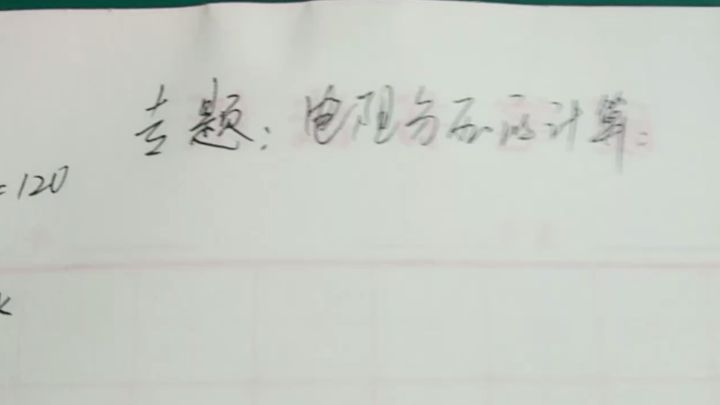 专题：电阻分压的计算：
= 120